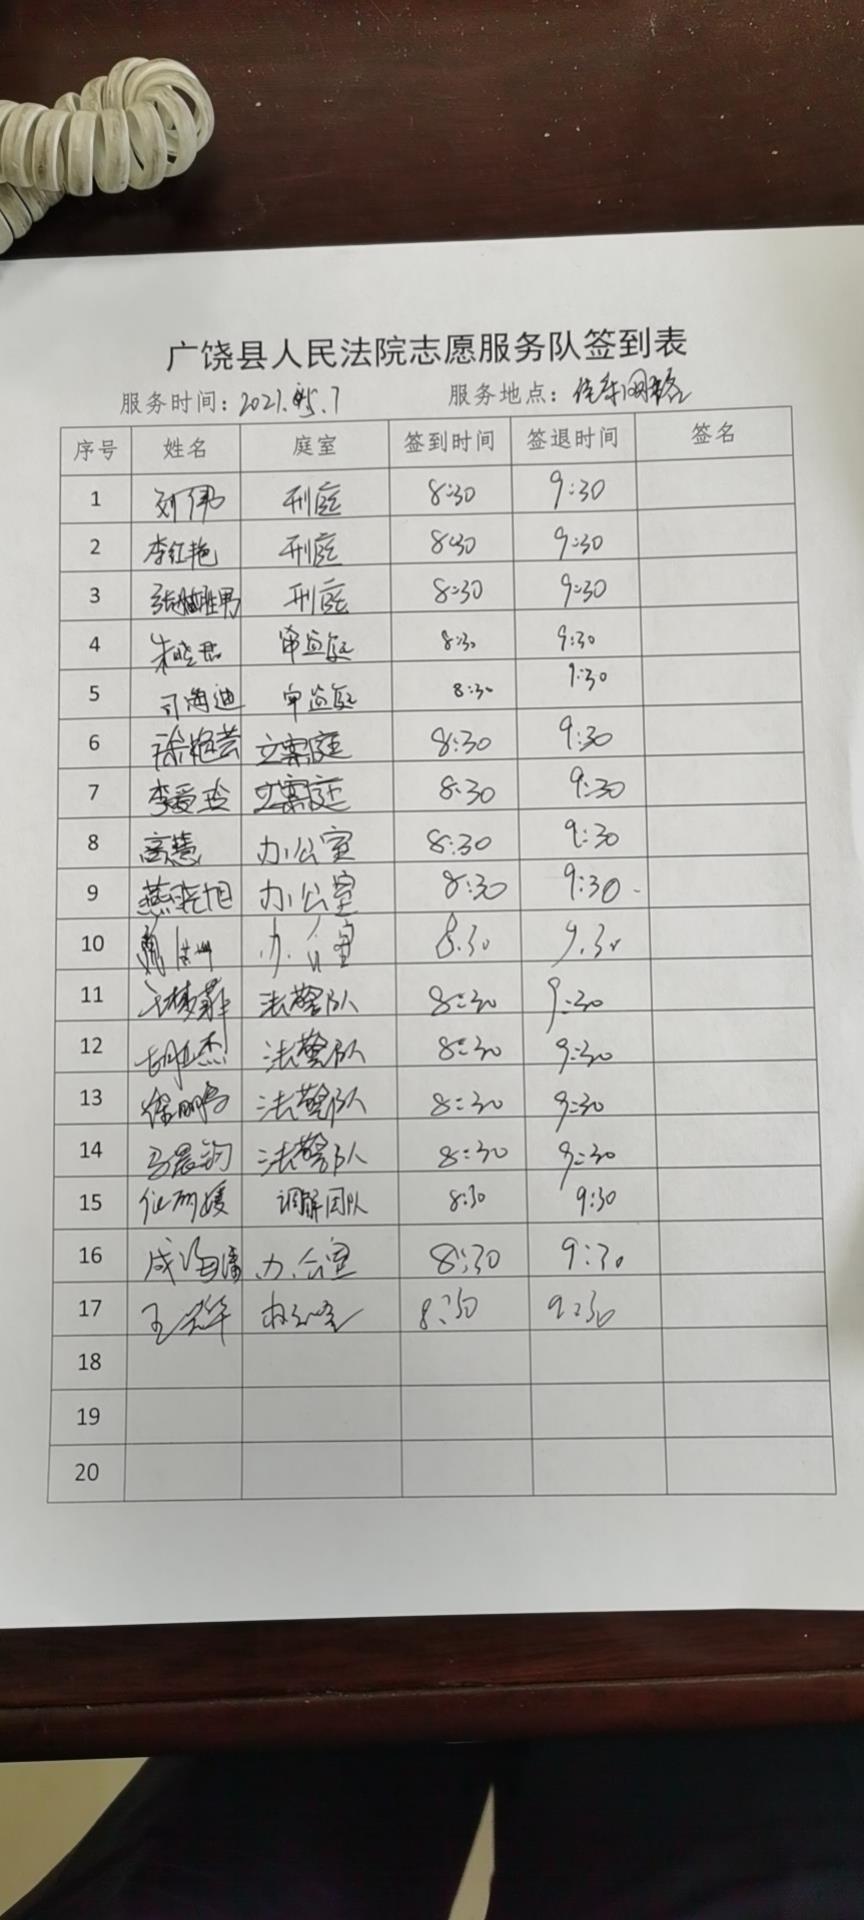 广饶县人民法院志愿服务队签到表
服务时间：2021.5.7 服务地点：
序号 姓名 庭室 签到时间 签退时间 签名
1 刘伟 刑庭 8:30 9:30
2 李红艳 刑庭 8:30 9:30
3 刑庭 8:30 9:30
4 朱晓君 审监庭 8:30 9:30
5 司海迪 审监庭 8:30 9:30
6 徐艳芸 立案庭 8:30 9:30
7 李爱玲 立案庭 8:30 9:30
8 高慧 办公室 8:30 9:30
9 燕晓旭 办公室 8:30 9:30
10 办公室 8:30 9:30
11 法警队 8:30 9:30
12 法警队 8:30 9:30
13 徐鹏 法警队 8:30 9:30
14 马晨钧 法警队 8:30 9:30
15 调解团队 8:30 9:30
16 成海潘 办公室 8:30 9:30
17 王 8:30 9:30
18
19
20